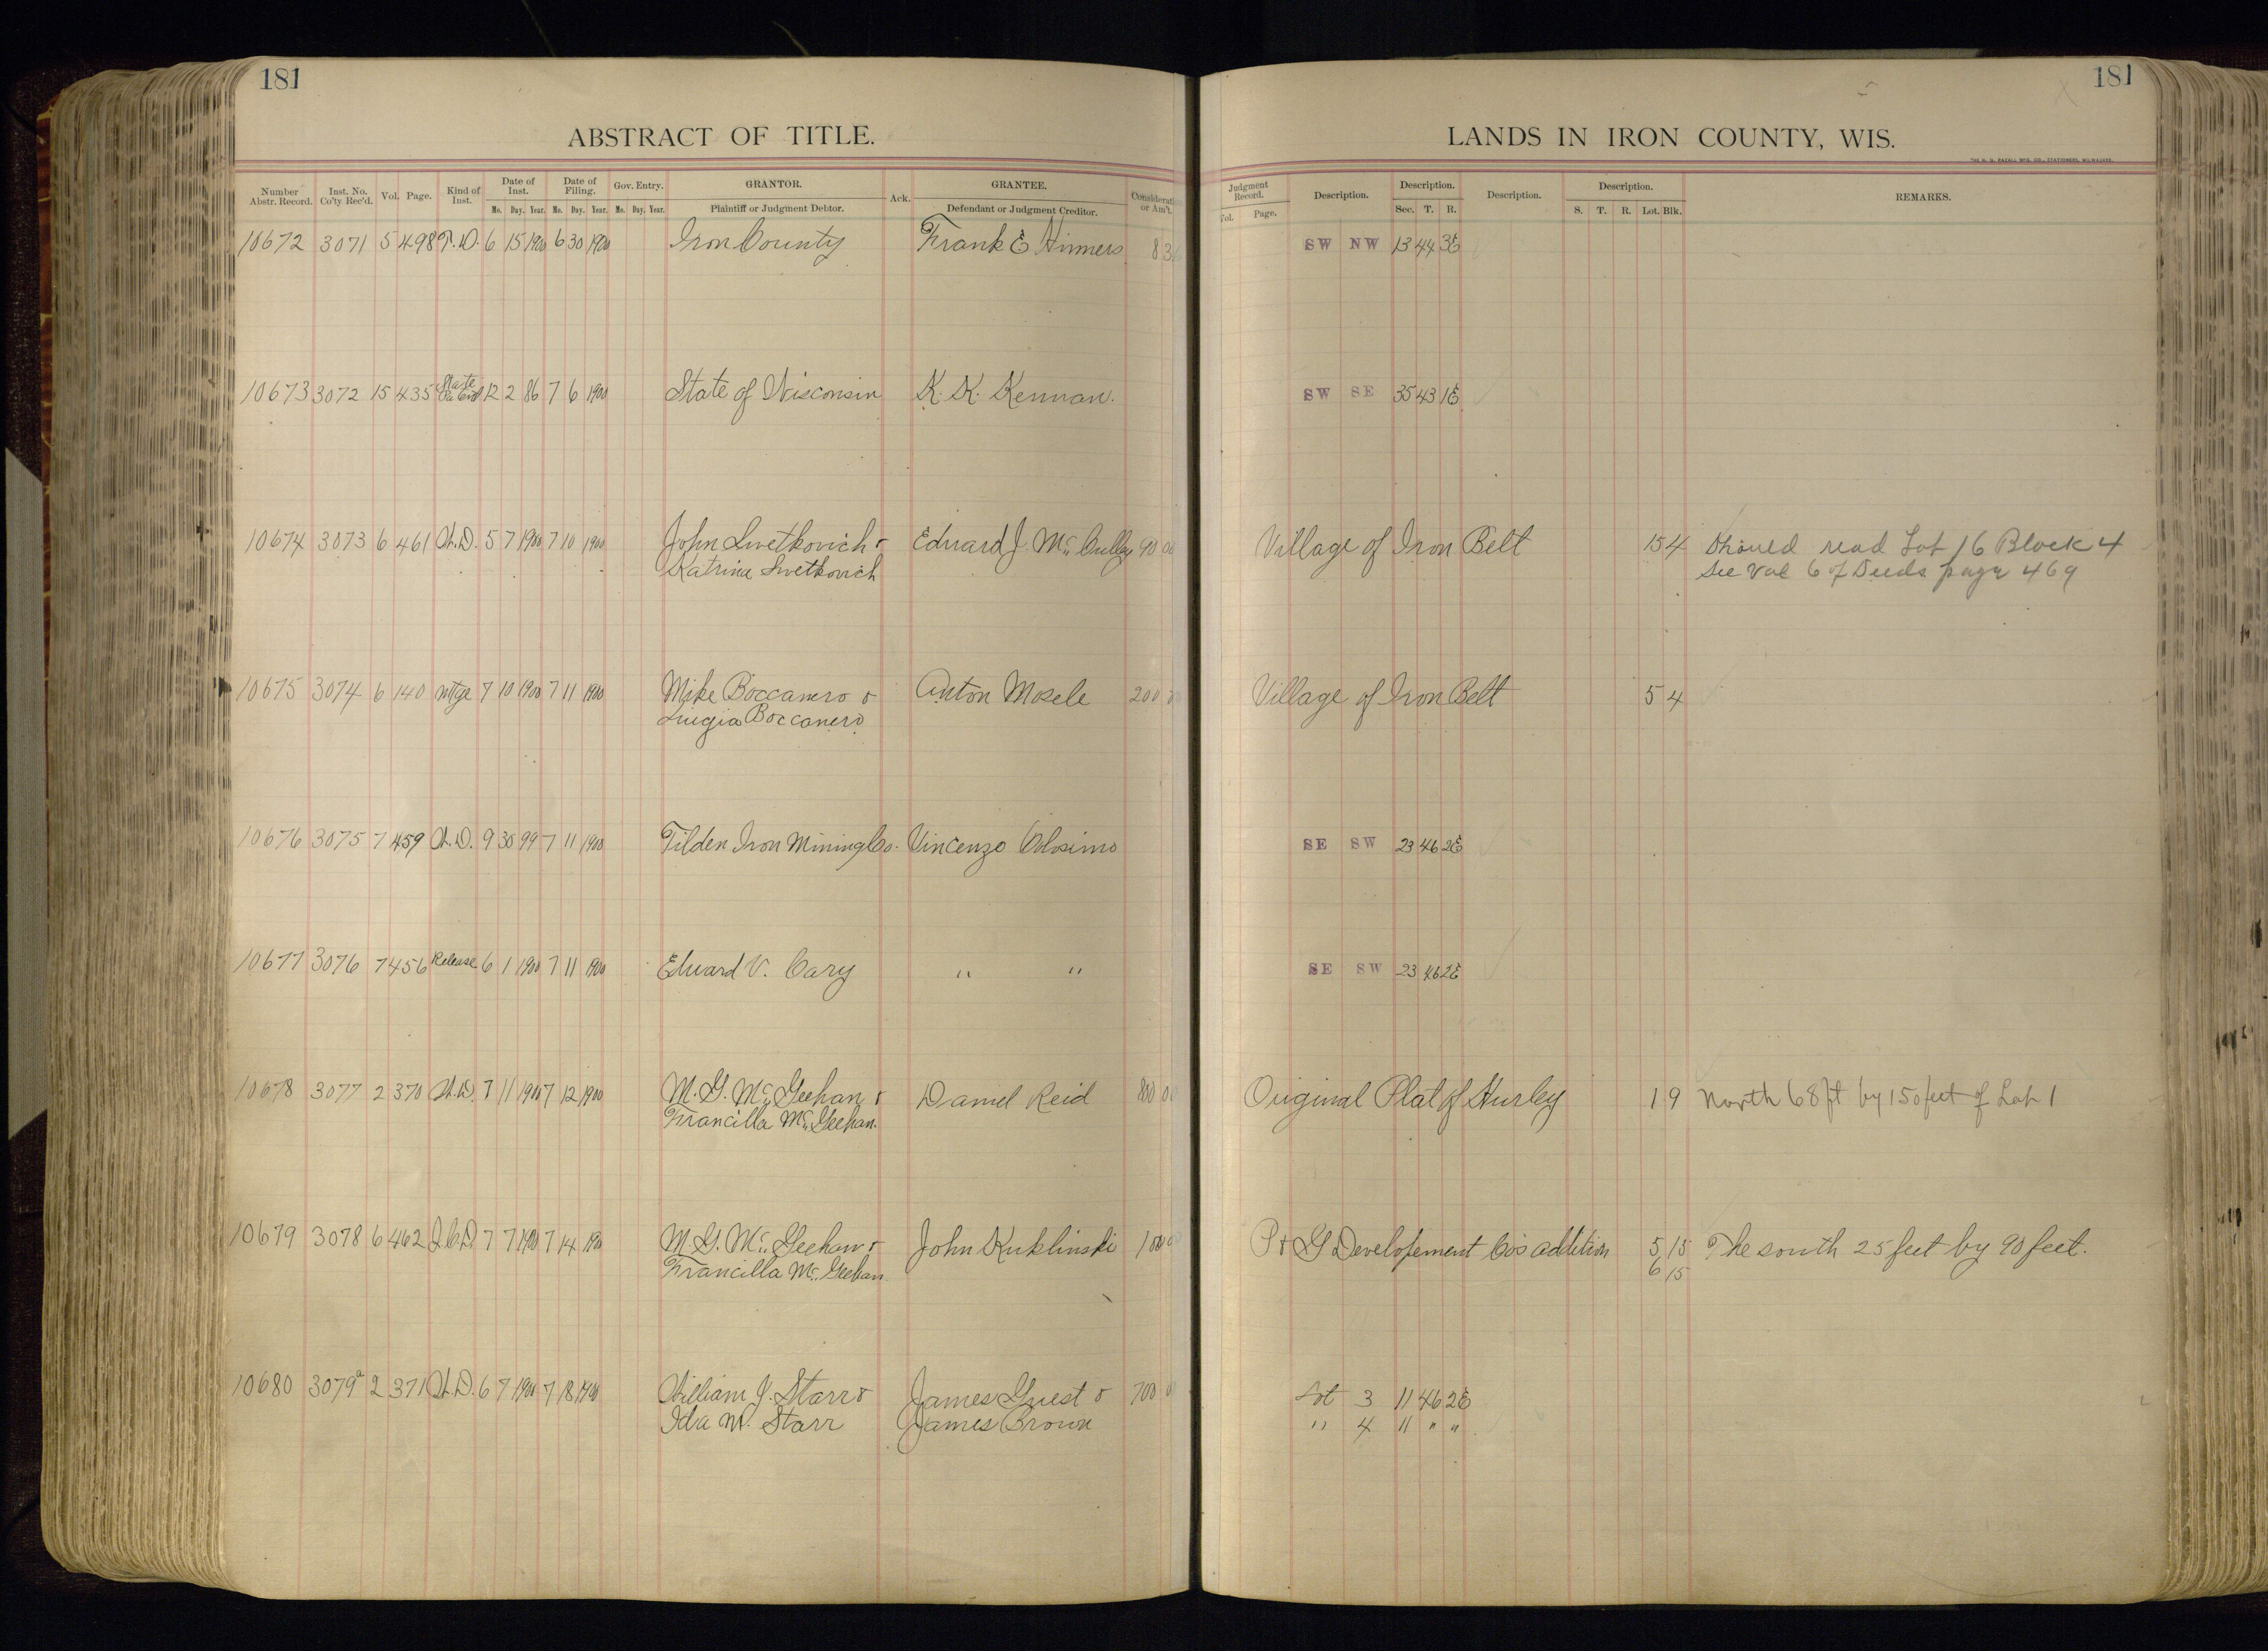 181
ABSTRACT OF TITLE.
Number Abstr. Record. Inst. No. Co'ty Rec'd. Vol. Page. Kind of Inst. Date of Inst. Mo. Day. Year. Date of Filing. Mo. Day. Year. Gov. Entry. Mo. Day. Year. GRANTOR. Plaintiff or Judgment Debtor. Ack. GRANTEE. Defendant or Judgment Creditor. Consideration or Am't.
10672 3071 5 498 T.D. 6 15 1900 6 30 1900 Iron County Frank E Hinners 8 36
10673 3072 15 435 State 12 2 86 7 6 1900 State of Wisconsin K. K. Kennan.
10674 3073 6 461 W.D. 5 7 1900 7 10 1900 John Swetkovich & Edward J. Mc Cullay 90 00
Katrina Swetkovich
10675 3074 6 140 mtge 7 10 1900 7 11 1900 Mike Boccanero & Anton Mosele 200 00
Luigia Boccanero
10676 3075 7 459 W.D. 9 30 99 7 11 1900 Tilden Iron Mining Co. Vincenzo Colosimo
10677 3076 7 456 Release 6 1 1900 7 11 1900 Edward V. Cary " "
10678 3077 2 370 W.D. 7 11 1900 7 12 1900 M. G. Mc Geehan & Daniel Reid 800 00
Francilla Mc Geehan.
10679 3078 6 462 Q.C.D. 7 7 1900 7 14 1900 M. G. Mc Geehan & John Kuklinski 100 00
Francilla Mc Geehan
10680 3079a 2 371 W.D. 6 7 1900 7 18 1900 William J. Starr & James Guest & 700 00
Ida M. Starr James Brown
181
LANDS IN IRON COUNTY, WIS.
THE H. G. RAZALL MFG. CO., STATIONERS, MILWAUKEE.
Judgment Record. Vol. Page. Description. Description. Sec. T. R. Description. Description. S. T. R. Lot. Blk. REMARKS.
SW NW 13 44 3E
SW SE 35 43 1E
Village of Iron Belt 15 4 Should read Lot 16 Block 4
See Vol 6 of Deeds page 469
Village of Iron Belt 5 4
SE SW 23 46 2E
SE SW 23 46 2E
Original Plat of Hurley 1 9 North 68 ft by 150 feet of Lot 1
P & G Developement Co's addition 5 15 The south 25 feet by 90 feet.
6 15
Lot 3 11 46 2E
" 4 11 " "